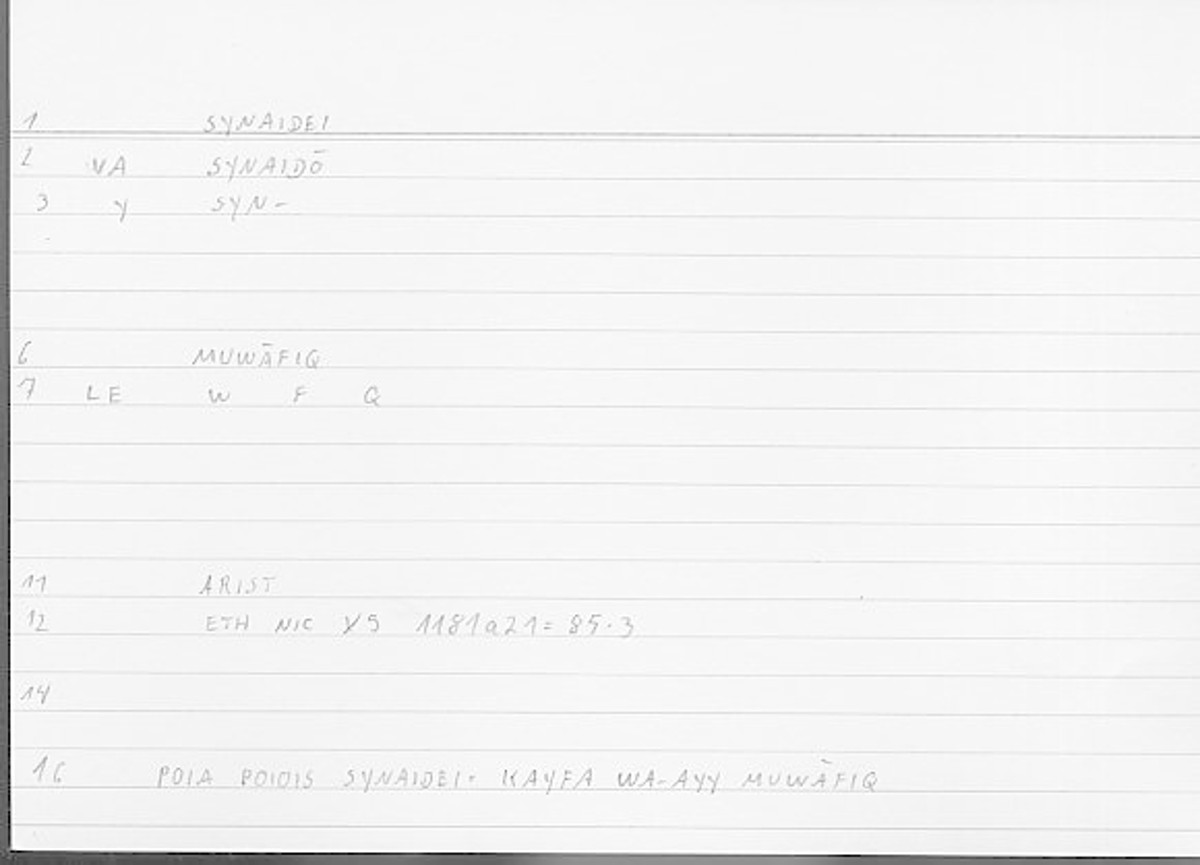 1 SYNAIDEI
2 VA SYNAIDŌ
3 Y SYN-
6 MUWĀFIQ
7 LE W F Q
11 ARIST
12 ETH NIC X9 1181a21= 85.3
14
16 POIA POIOIS SYNAIDEI. KAYFA WA-AYY MUWĀFIQ